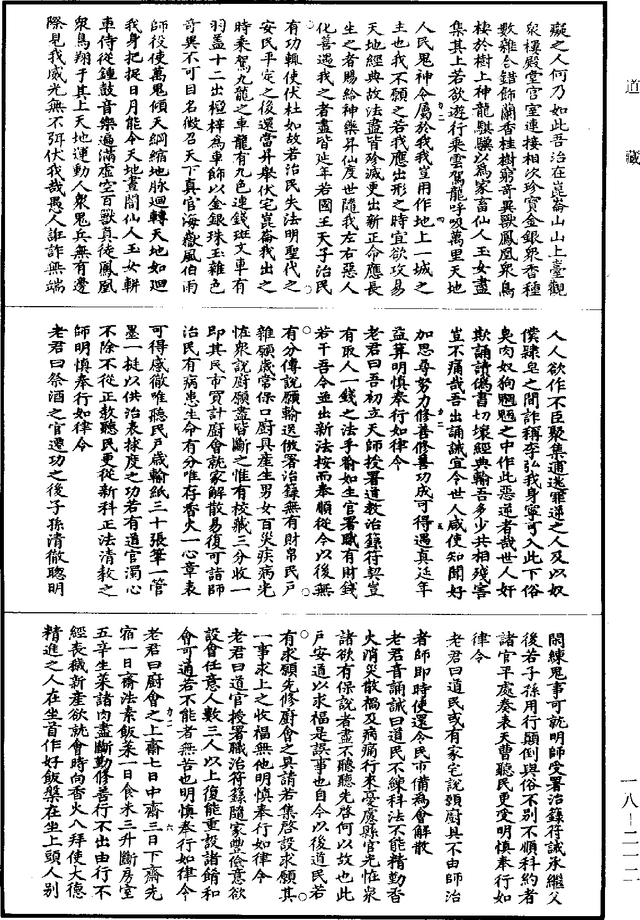 道藏
癡之人何乃如此吾治在崑崙山山上臺觀
衆樓殿堂宮室連接相次珍寶金銀衆香種
數雜合錯飾蘭香桂樹窮奇異獸鳳凰衆鳥
棲於樹上神龍騏驥以爲家畜仙人玉女盡
集其上若欲遊行乘雲駕龍呼吸萬里天地
人民鬼神令屬於我我豈用作地上一城之
主也我不願之若我應出形之時宜欲攻易
天地經典故法盡皆殄滅更出新正命應長
生之者賜給神藥昇仙度世隨我左右惡人
化善遇我之者盡皆延年若國王天子治民
有功輒使伏杜如故若治民失法明聖代之
安民平定之後還當昇舉伏宅崑崙我出之
時乘駕九龍之車龍有九色連錢斑文車有
羽蓋十二出檉梓爲車飾以金銀珠玉雜色
奇異不可目名徵召天下真官海嶽風伯雨
師役使萬鬼傾天綱縮地脉迴轉天地如迴
我身把捉日月能令天地晝闇仙人玉女軿
車侍從鍾鼓音樂遍滿虛空百獸真徒鳳凰
衆鳥翔于其上天地運動人衆鬼兵無有邊
際見我威光無不弭伏我哉愚人誑詐無端
人人欲作不臣聚集逋逃罪逆之人及以奴
僕隸皂之間詐稱李弘我身寧可入此下俗
臭肉奴狗魍魎之中作此惡逆者哉世人奸
欺誦讀僞書切壞經典輸吾多少共相殘害
豈不痛哉吾出誦誡宜令世人咸使知聞好
加思尋努力修善修善功成可得遇真延年
益算明慎奉行如律令
老君曰吾初立天師授署道教治籙符契豈
有取人一錢之法乎輸如生官署職有財錢
若干吾今並出新法按而奉順從今以後無
有分傳說願輸送倣署治籙無有財帛民戶
雜願歲常保口廚具產生男女百災疾病光
怪衆說廚願盡皆斷之惟有校藏三分收一
即其民市買計廚會就家解散易復可諮師
治民有病患生命有分唯存香火一心章表
可得感徹唯聽民戶歲輸紙三十張筆一管
墨一挺以供治表救度之功若有道官濁心
不除不從正教聽民更從新科正法清教之
師明慎奉行如律令
老君曰祭酒之官遷功之後子孫清徹聰明
閑練鬼事可就明師受署治籙符誡承繼父
後若子孫用行顛倒與俗不別不順科約者
諸官平處奏表天曹聽民更受明慎奉行如
律令
老君曰道民或有家宅說願廚具不由師治
者師即時使還令民市備爲會解散
老君音誦誡曰道民不練科法不能精勤香
火消災散禍及病痛行來受虜縣官光怪衆
諸欲有保說者盡不聽聽先啓何以故也此
戶安道以求福是誤事也自今以後道民若
有求願先修廚會之具請若集啓設求願其
一事求上之收福無他明慎奉行如律令
老君曰道官授署職治符籙隨家豐儉意欲
設會任意人數三人以上復能重設諸餚和
會可通若不能者無苦也明慎奉行如律令
老君曰廚會之上齋七日中齋三日下齋先
宿一日齋法素飯菜一日食米三升斷房室
五辛生菜諸肉盡斷勤修善行不出由行不
經喪穢新產欲就會時向香火八拜使大德
精進之人在坐首作好飯槃在坐上頭人別
一八—二一二